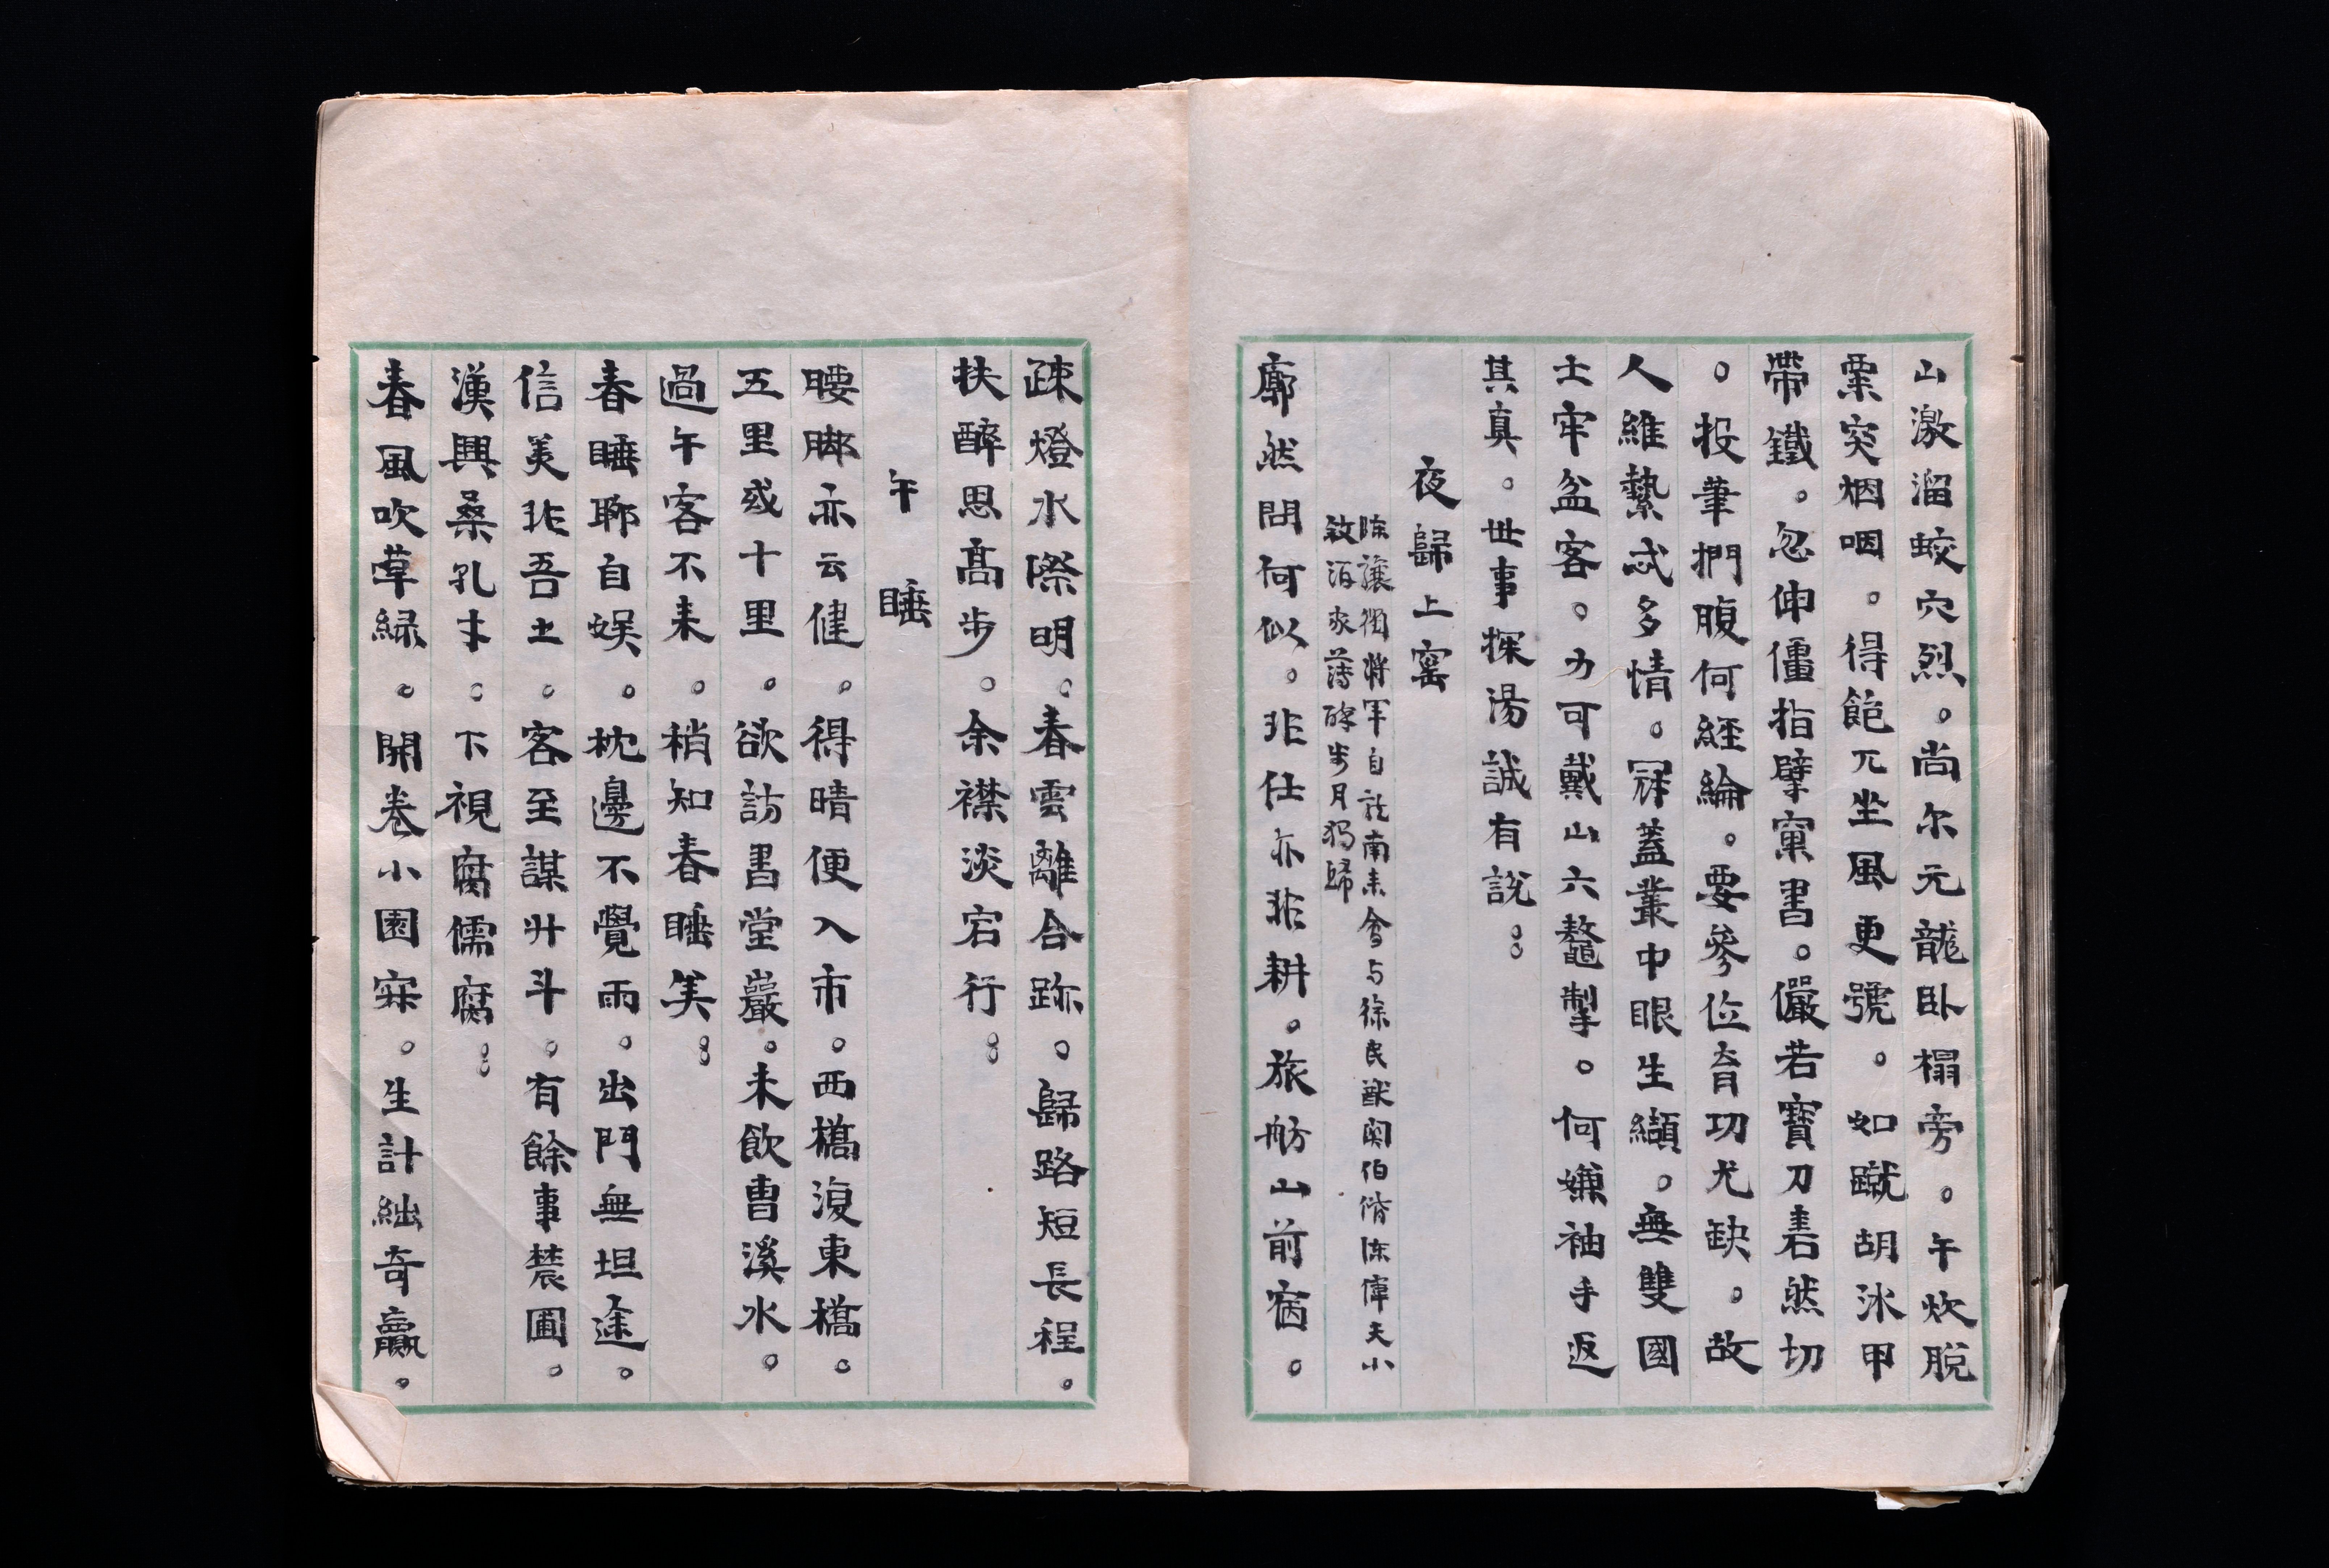 山激溜蛟穴烈。尚尔元龍卧榻旁。午炊脫
粟突烟咽。得飽兀坐風更號。如蹴胡冰甲
帶鐵。忽伸僵指擘窠書。儼若寶刀砉然切
。投筆捫腹何経綸。要參位育功尤缺。故
人維縶忒多情。冠蓋叢中眼生纈。無雙國
士牢盆客。力可戴山六鼇掣。何嫌袖手返
其真。世事探湯誠有說。。
夜歸上窰
陈讓衡将軍自託南来會与徐民猷闵伯偕陈偉夫小
敘酒家薄醉步月獨歸
廓然問何似。非仕亦非耕。旅舫山前宿。
疎燈水際明。春雲離合跡。歸路短長程。
扶醉思髙步。余襟淡宕行。。
午睡
腰脚亦云健。得晴便入市。西橋復東橋。
五里或十里。欲訪書堂巖。未飲曹溪水。
過午客不来。稍知春睡美。。
春睡聊自娱。枕邊不覺雨。出門無坦途。
信美非吾土。客至謀升斗。有餘事農圃。
漢興桑孔才。下視腐儒腐。。
春風吹草緑。開卷小園寀。生計絀奇贏。